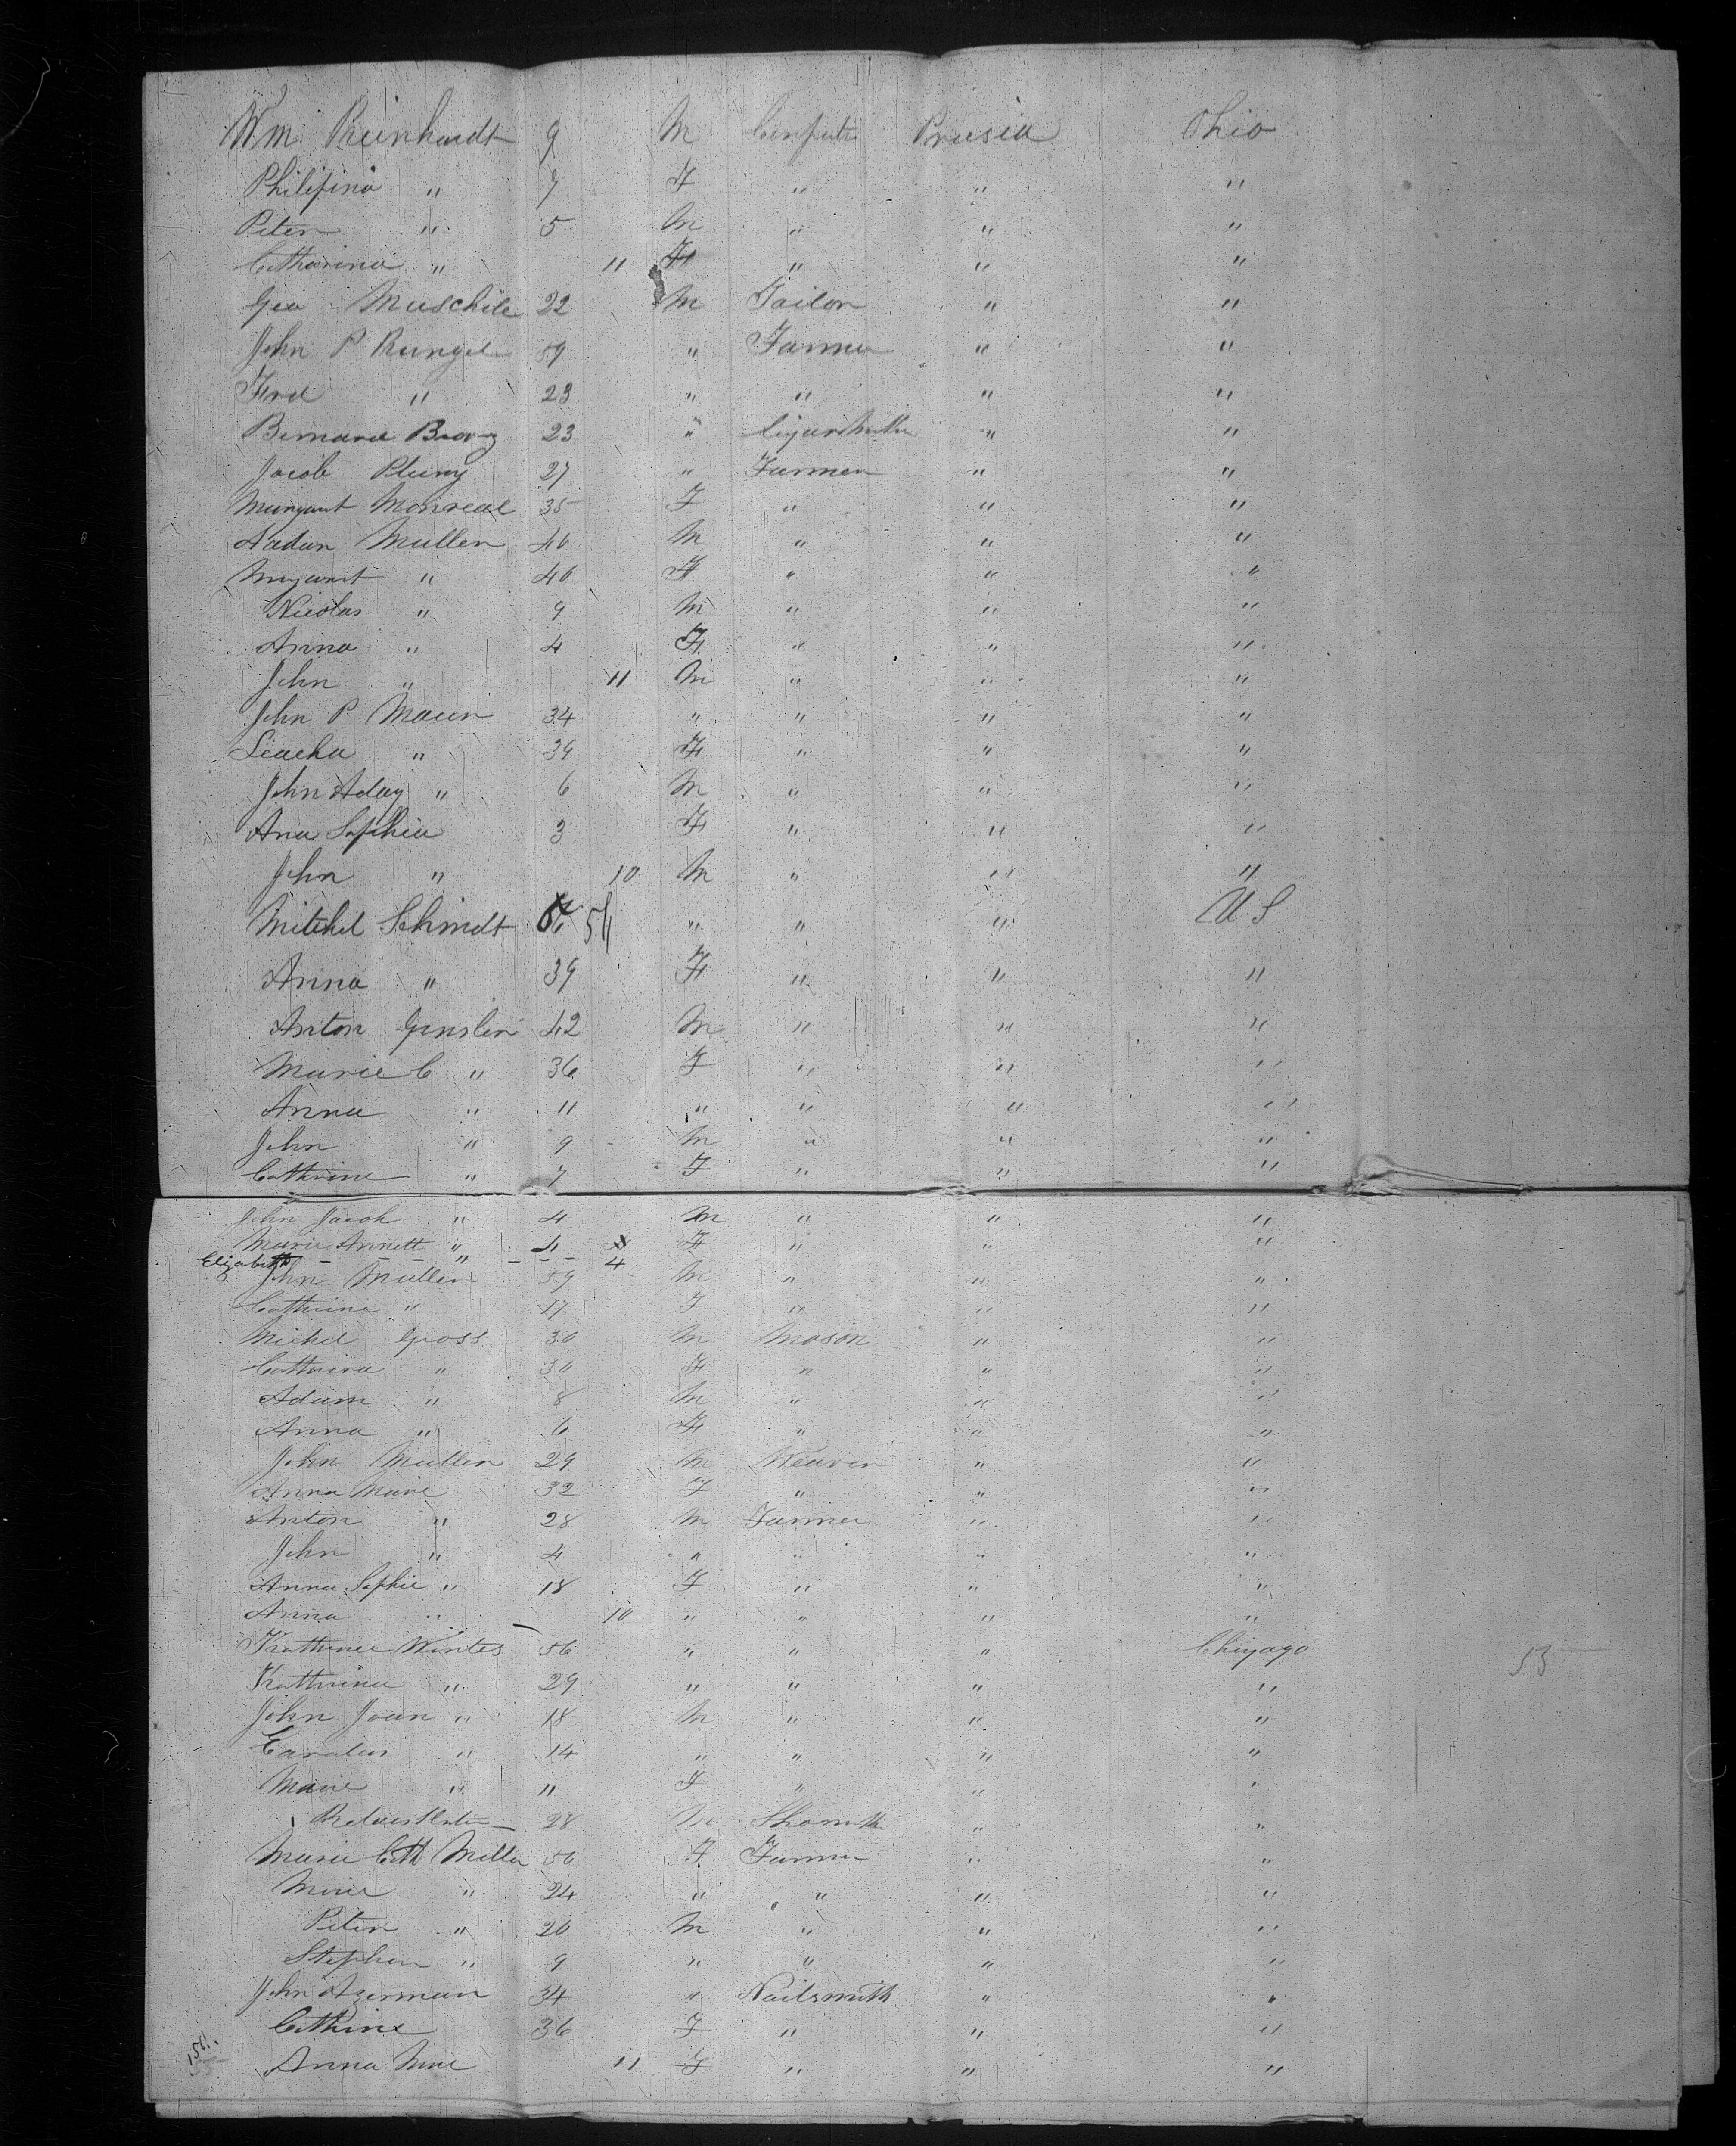 Wm. Reinhardt 9 M Prusia Ohio
Philipina " 7 F " " "
Peter " 5 M " " "
Catharina " 11 F " " "
Geo Muschile 22 M Tailor " "
John P Rungel 59 " Farmer " "
Fred " 23 " " " "
Bernard 23 " " "
Jacob 27 " Farmer " "
Margaret Monreal 35 F " " "
Muller 46 M " " "
Margaret " 46 F " " "
Nicolas " 9 M " " "
Anna " 4 F " " "
John " 11 M " " "
John P Maun 34 " " " "
" 34 F " " "
John " 6 M " " "
Ana Sophia 3 F " " "
John " 10 M " " "
Schmidt 54 " " " U S
Anna " 39 F " " "
Anton 42 M " " "
Marie C " 36 F " " "
Anna " 11 " " " "
John " 9 M " " "
Cathrine " 7 F " " "
John Jacob " 4 M " " "
Marie Annett " 4 F " " "
Elizabeth - - - - " - - - 4
John Muller 59 M " " "
Cathrine " 17 F " " "
Michel Gross 30 M Mason " "
Cathrina " 30 F " " "
Adam " 8 M " " "
Anna " 6 F " " "
John Muller 29 M Weaver " "
Anna Marie 32 F " " "
Anton " 28 M Farmer " "
John " 4 " " " "
Anna Sophie " 18 F " " "
Anna " 10 " " " "
56 " " " Chiyago 53
Kathrina " 29 " " " "
John " 18 M " " "
" 14 " " " "
Marie " 11 F " " "
28 M " "
Marie Cath Miller 56 F Farmer " "
Marie " 24 " " " "
Peter " 20 M " " "
Stephen " 9 " " " "
John 34 " Nailsmith " "
Cathrine 36 F " " "
Anna Marie 11 F " " "